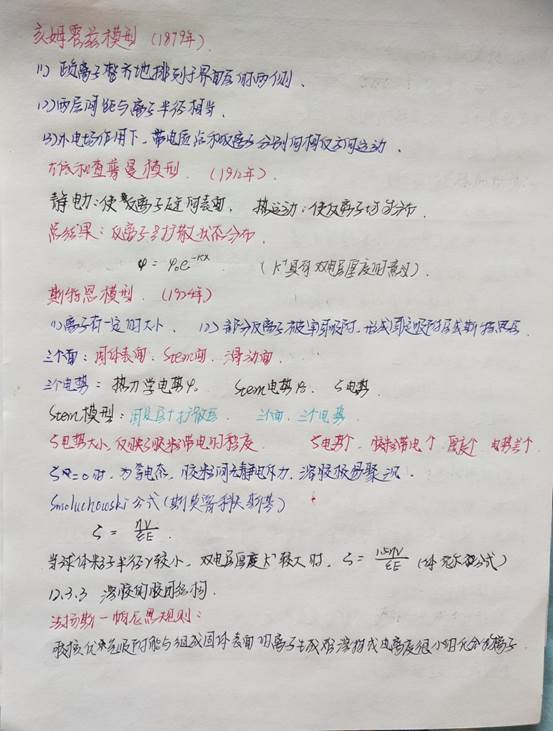 亥姆霍兹模型 (1879年).
(1) 正负离子整齐地排列于界面层的两侧.
(2) 两层间距与离子半径相当.
(3) 外电场作用下,带电质点和反离子分别向相反方向运动.
古依和查普曼模型. (1912年).
静电力:使反离子趋向表面. 热运动:使反离子均匀分布.
总结果:反离子呈扩散状态分布.
φ = φ₀e^-κx (κ⁻¹具有双电层厚度的意义).
斯特恩模型. (1924年)
(1) 离子有一定的大小. (2) 部分反离子被牢固吸附,形成固定吸附层或斯特恩层
三个面:固体表面. Stern面. 滑动面.
三个电势: 热力学电势φ₀ Stern电势 ζ电势
Stern模型:固定层+扩散层. 三个面.三个电势.
ζ电势大小,反映了胶粒带电的程度. ζ电势↑. 胶粒带电↑ 层厚↑ 电势差↑
ζ=0时,为等电态,胶粒间无静电斥力,溶胶极易聚沉.
Smoluchowski 公式(斯莫鲁科夫斯基)
ζ = ηv/εE.
当球体粒子半径r较小,双电层厚度κ⁻¹较大时, ζ = 1.5ηv/εE (休克尔公式)
12.3.3 溶胶的胶团结构.
法扬斯-帕尼思规则:
胶核优先吸附能与组成固体表面的离子生成难溶物或电离度很小的化合物的离子